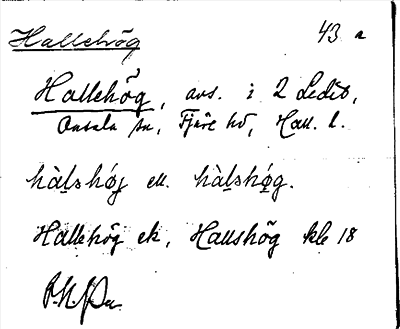 Hallehög 43 a
Hallehög, avs. i 2 Ledet,
Onsala sn, Fjäre hd, Hall. l.
hàḷshó̱g ell. hàḷshǿ̱g.
Hallehög ek, Hallshög kle 18